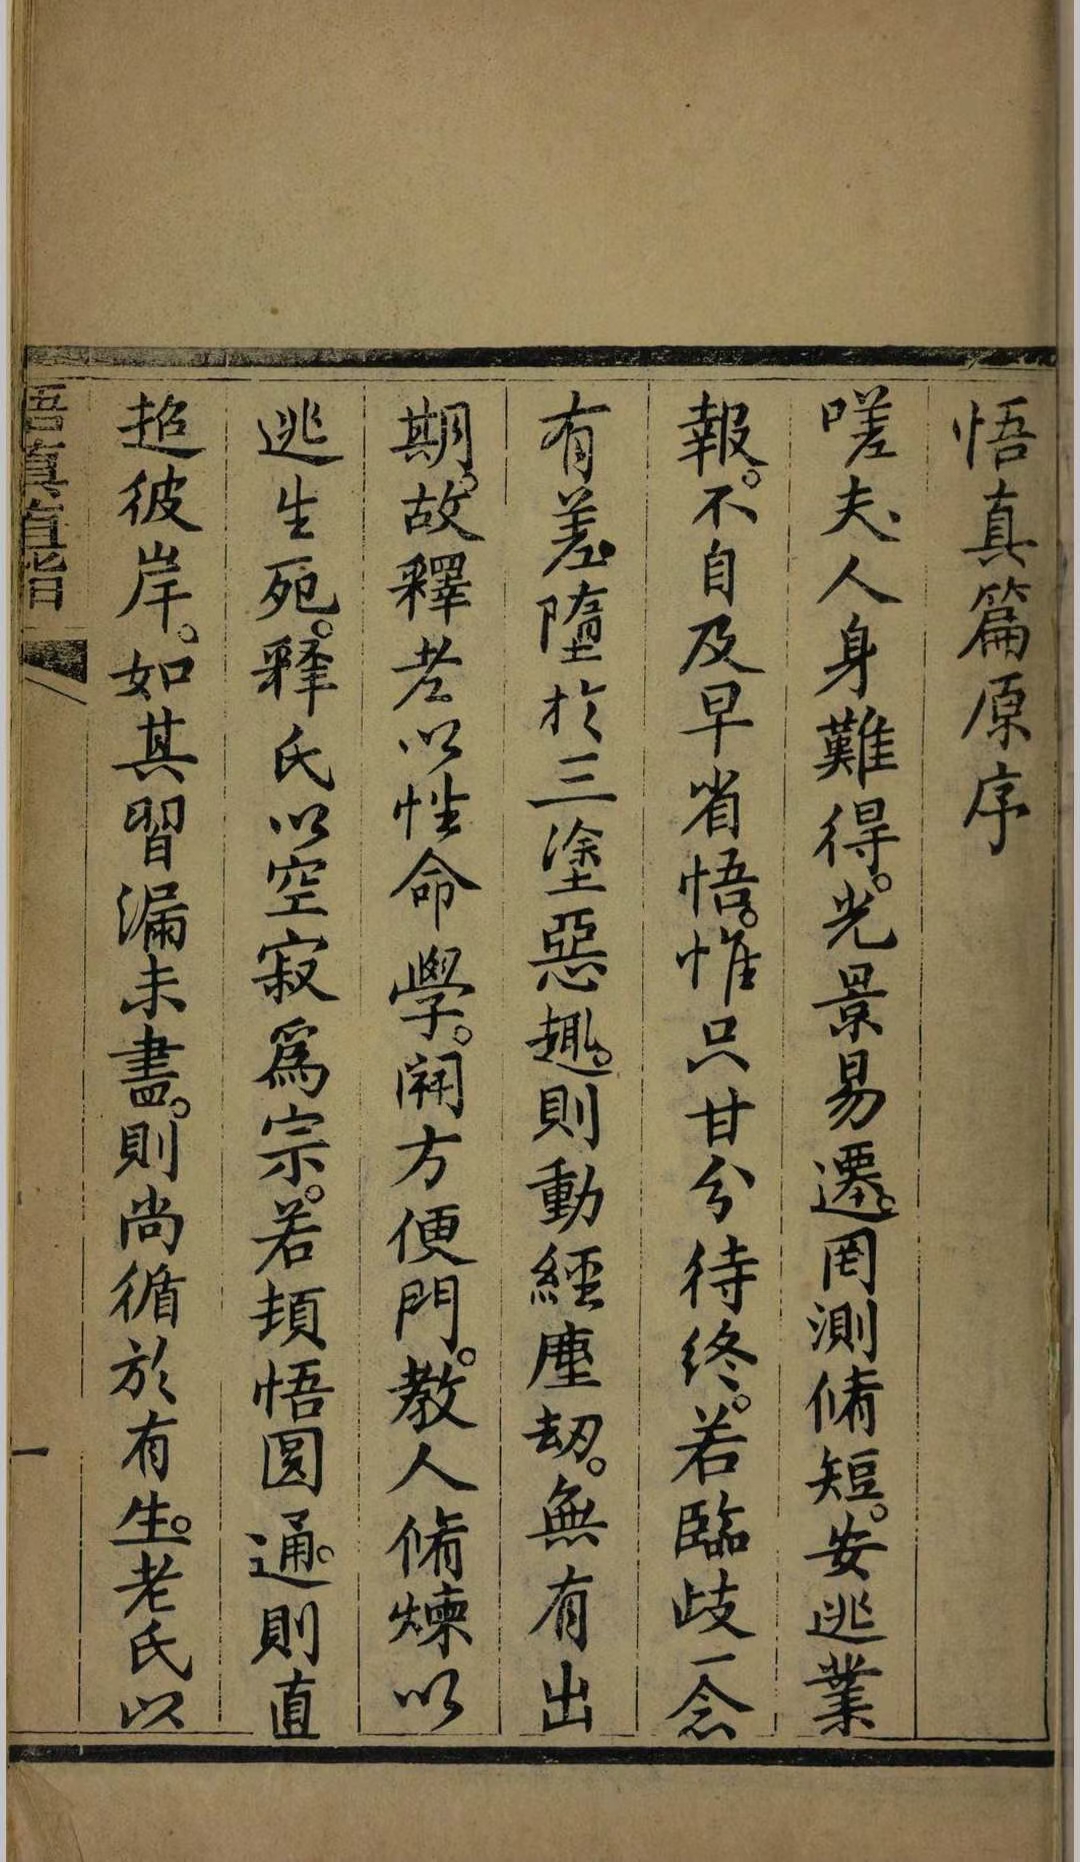 悟真篇原序
嗟夫、人身難得。光景易遷。罔測脩短。安逃業
報。不自及早省悟。惟只甘分待終。若臨歧一念
有差墮於三塗惡趣。則動經塵劫。無有出
期。故釋老以性命學。開方便門。教人脩煉以
逃生死。釋氏以空寂爲宗。若頓悟圓通。則直
超彼岸。如其習漏未盡。則尚循於有生。老氏以
悟真直指
一